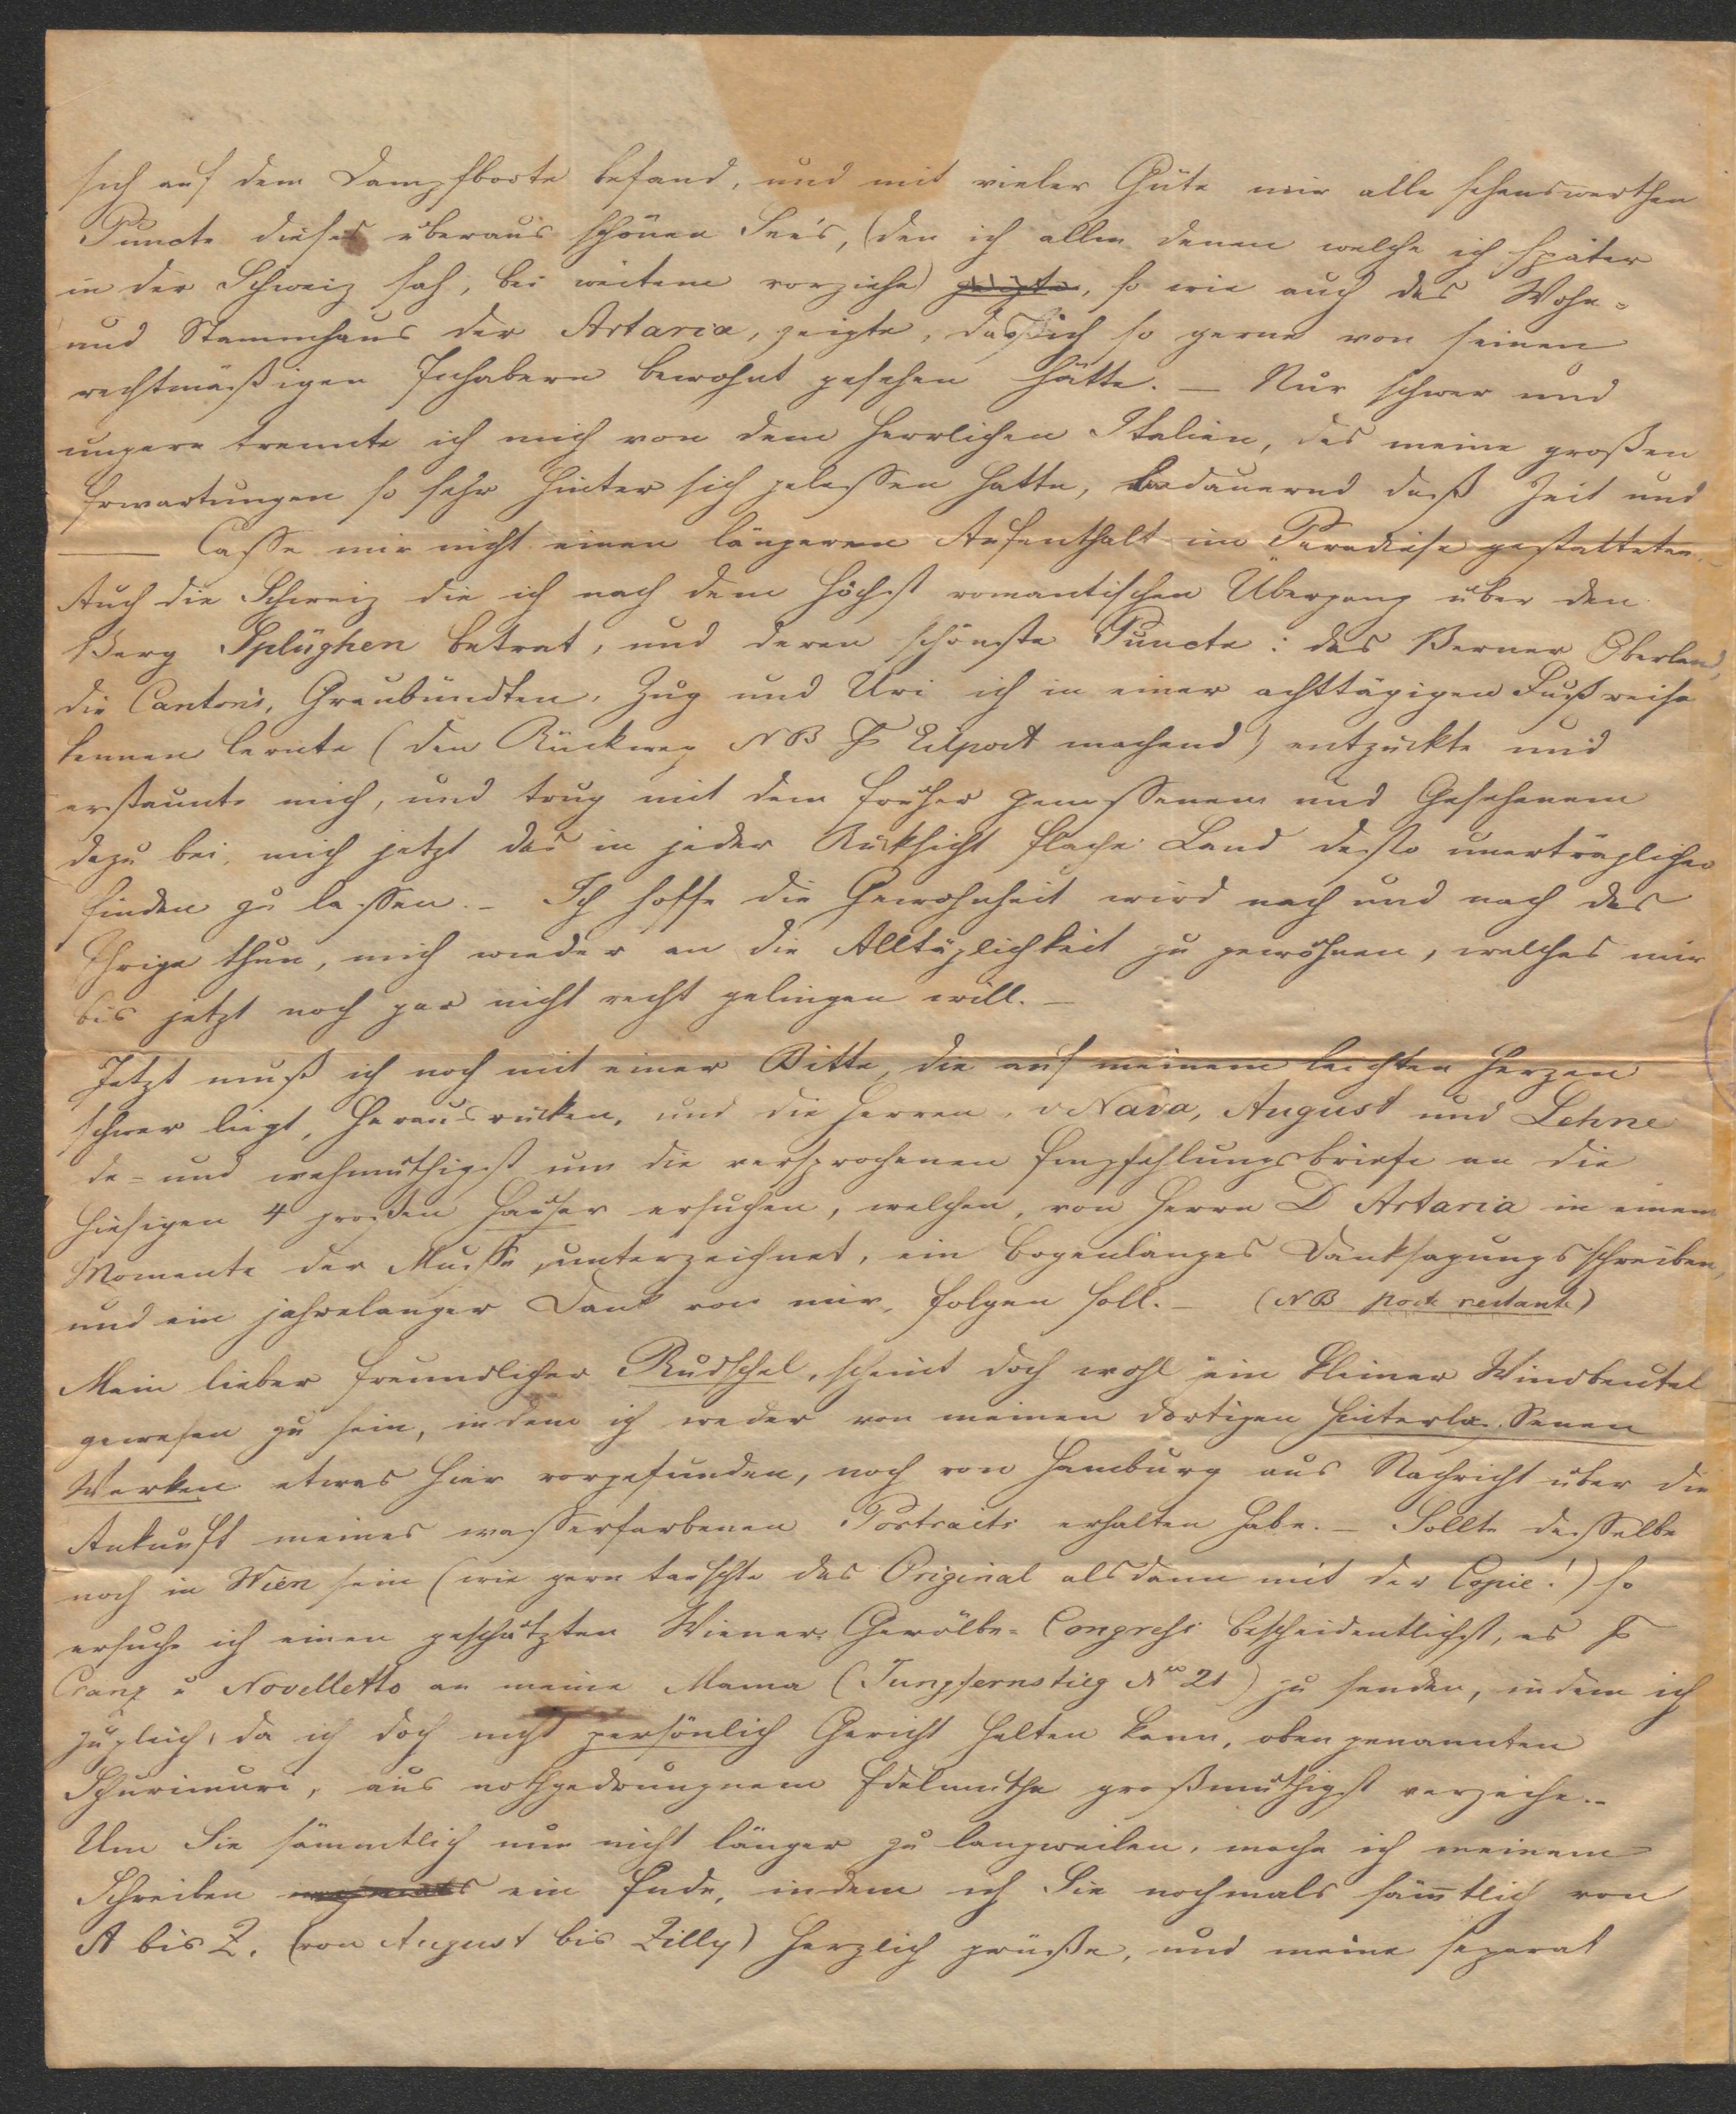 sich auf dem Dampfboote befand, und mit vieler Güte mir alle sehenswerthen
Puncte dieses überaus schönen See's, (den ich allen denen welche ich später
in der Schweiz sah, bei weitem vorziehe) zeigte, so wie auch das Wohn-
und Stammhaus der Artaria, zeigte, das ich so gerne von seinen
rechtmäßigen Inhabern bewohnt gesehen hätte. — Nur schwer und
ungern trennte ich mich von dem herrlichen Italien, das meine großen
Erwartungen so sehr hinter sich gelassen hatte, bedauernd daß Zeit und
— Casse mir nicht einen längeren Aufenthalt im Paradiese gestatteten.
Auch die Schweiz die ich nach dem höchst romantischen Übergang über den
Berg Splüghen betrat, und deren schönste Puncte: das Berner Oberland,
die Canton's, Graubündten, Zug und Uri ich in einer achttägigen Fußreise
kennen lernte (den Rückweg NB Eilpost machend) entzückte und
erstaunte mich, und trug mit dem früher Genossenem und Gesehenem
dazu bei, mich jetzt das in jeder Rücksicht flache Land desto unerträglicher
finden zu lassen. — Ich hoffe die Gewohnheit wird nach und nach das
Ihrige thun, mich wieder an die Alltäglichkeit zu gewöhnen, welches mir
bis jetzt noch gar nicht recht gelingen will. —
Jetzt muß ich noch mit einer Bitte, die auf meinem leichten Herzen
schwer liegt, herausrücken, und die Herren, v Nava, August und Lehne
de- und wehmüthigst um die versprochenen Empfehlungsbriefe an die
hiesigen 4 großen Häuser ersuchen, welchen, von Herrn D Artaria in einem
Momente der Musse unterzeichnet, ein bogenlanges Danksagungsschreiben,
und ein jahrelanger Dank von mir, folgen soll. — (NB post restante)
Mein lieber freundlicher Rudschel, scheint doch wohl ein kleiner Windbeutel
gewesen zu sein, indem ich weder von meinen dortigen hinterlassenen
Werken etwas hier vorgefunden, noch von Hamburg aus Nachricht über die
Ankunft meines wasserfarbenen Portraits erhalten habe. — Sollte dasselbe
noch in Wien sein (wie gern tauschte das Original alsdann mit der Copie!) so
ersuche ich einen geschätzten Wiener-Gewölbe-Congress bescheidentlichst, es
Cranz u Novelletto an meine Mama (Jungfernstieg No 21) zu senden, indem ich
zugleich, da ich doch nicht persönlich Gericht halten kann, oben genannten
Schurimuri, aus nothgedrungnem Edelmuthe großmüthigst verzeihe. —
Um Sie sämmtlich nun nicht länger zu langweilen, mache ich meinem
Schreiben ein Ende, indem ich Sie nochmals sämtlich von
A bis Z. (von August bis Zilly) herzlich grüße, und meine separat